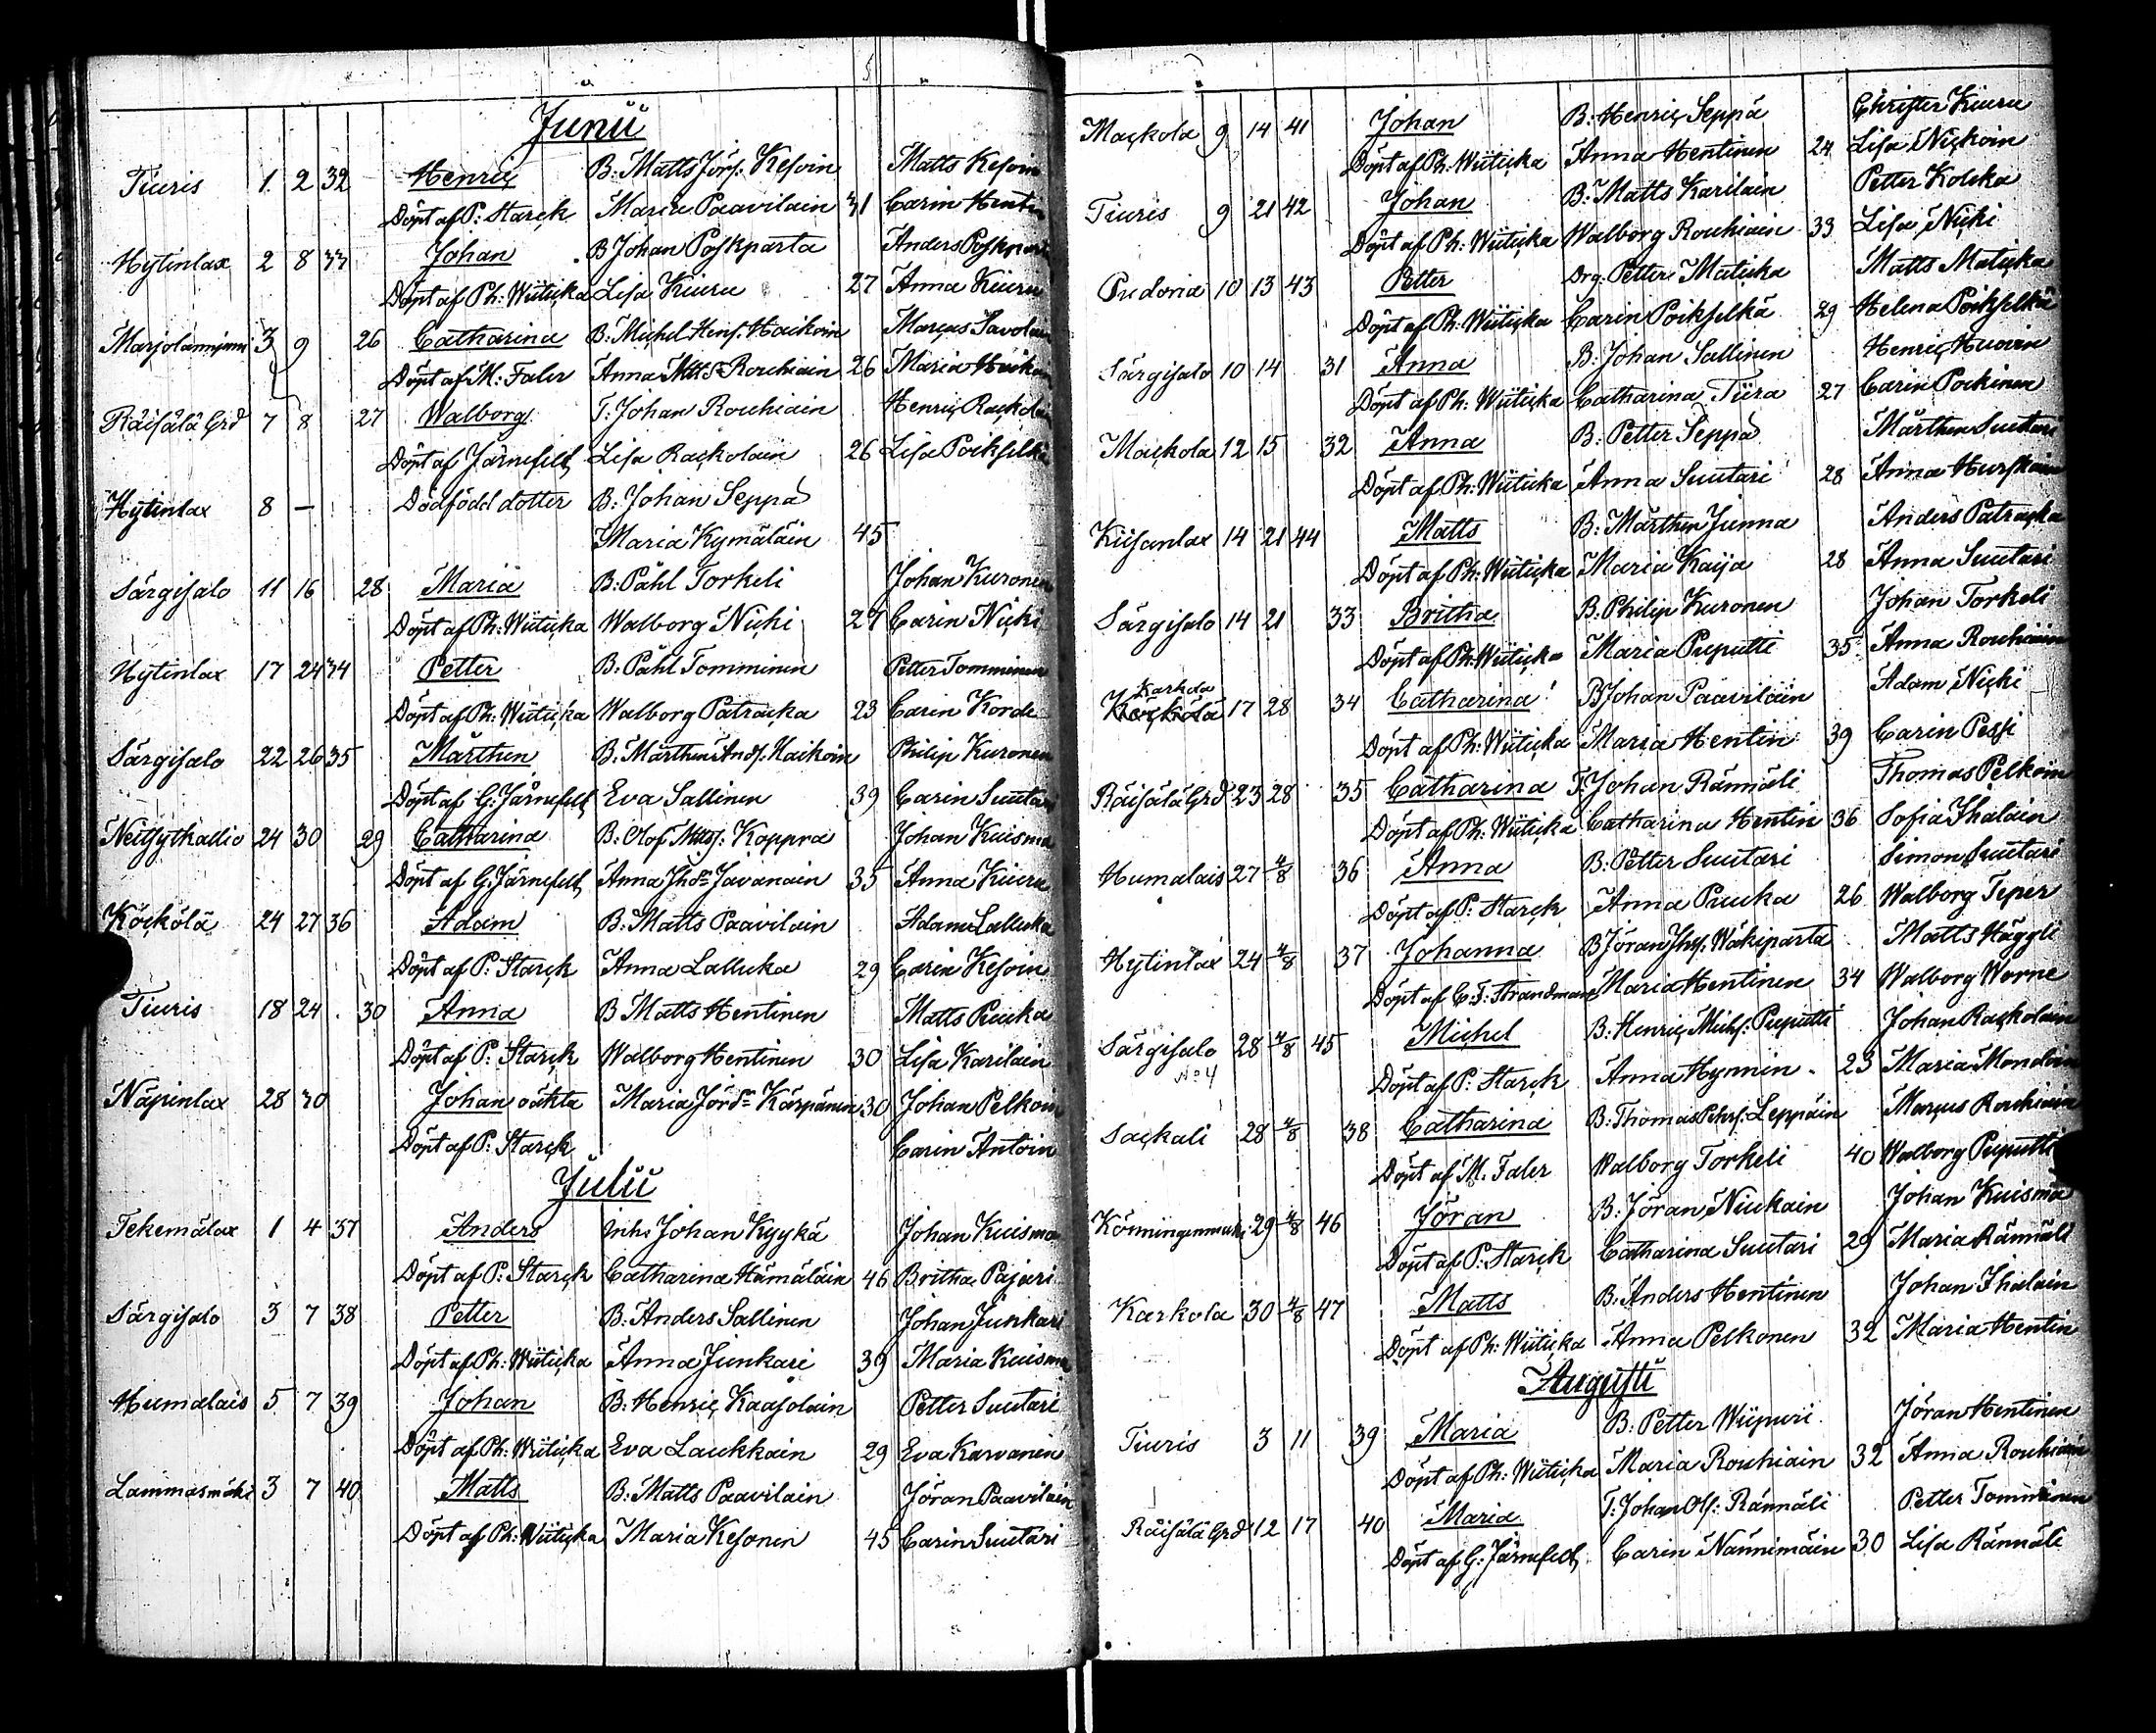 Junii
Tiuris 1 2 32 Henric B: Matts Jörs: Kesoin Matts Kesoin
Döpt af P: Starck Maria Paavilain 31 Carin Hentin
Hytinlax 2 8 33 Johan B Johan Poskparta Anders Poskparta
Döpt af Ph: Wiiticka Lisa Kiuru 27 Anna Kiuru
3 9 26 Catharina B: Michel Hens: Haikoin Marcus Savolain
Döpt af M: Faler Anna Matts Dr Rouhiain 26 Maria Haikoin
Räisälä Grd 7 8 27 Walborg T: Johan Rouhiain Henric Rackolain
Döpt af Järnefelt Lisa Rackolain 26 Lisa Poikselkä
Hytinlax 8 – Dödfödd dotter B: Johan Seppä
Maria Kymäläin 45
Särgisalo 11 16 28 Maria B: Påhl Torkeli Johan Kuronen
Döpt af Ph: Wiiticka Walborg Nicki 27 Carin Nicki
Hytinlax 17 24 34 Petter B: Påhl Tomminen Petter Tomminen
Döpt af Ph: Wiiticka Walborg Patracka 23 Carin
Särgisalo 22 26 35 Mårthen B: Mårthen Ands: Haikoin Philip Kuronen
Döpt af G: Järnefelt Eva Sallinen 39 Carin Suutari
Neitsytkallio 24 30 29 Catharina B: Olof Matts: Koppra Johan Kuisma
Döpt af G: Järnefelt Anna Javanain 35 Anna Kiuru
Köckölä 24 27 36 Adam B: Matts Paavilain Adam Lallucka
Döpt af P: Starck Anna Lallucka 29 Carin Kesoin
Tiuris 18 24 30 Anna B Matts Hentinen Matts Pucka
Döpt af P: Starck Walborg Hentinen 30 Lisa Karilain
Näpinlax 28 30 Johan oäkta Maria Jörs Dr Kärpänen 30 Johan Pelkoin
Döpt af P: Starck Carin Antoin
Julii
Tekemälax 1 4 37 Anders Inhs Johan Kyykä Johan Kuisma
Döpt af P: Starck Catharina Hämäläin 46 Britha Pajari
Särgisalo 3 7 38 Petter B: Anders Sallinen Johan Junkari
Döpt af Ph: Wiiticka Anna Junkari 39 Maria Kuisma
Humalais 5 7 39 Johan B: Henric Kaasolain Petter Suutari
Döpt af Ph: Wiiticka Eva Laukkain 29 Eva Karvanen
Lammasmäki 3 7 40 Matts B: Matts Paavilain Jöran Paavilain
Döpt af Ph: Wiiticka Maria Kesonen 45 Carin Suutari
Mackola 9 14 41 Johan B: Henric Seppä Christer Kiuru
Döpt af Ph: Wiiticka Anna Hentinen 24 Lisa Nickoin
Tiuris 9 21 42 Johan B: Matts Karilain Petter Kolcka
Döpt af Ph: Wiiticka Walborg Rouhiain 33 Lisa Nicki
Pudoria 10 13 43 Petter Drg: Petter Maticka Matts Maticka
Döpt af Ph: Wiiticka Carin Poikselkä 29 Helena Poikselkä
Särgisalo 10 14 31 Anna B: Johan Sallinen Henric Huovin
Döpt af Ph: Wiiticka Catharina Tiira 27 Carin Pockinen
Mackola 12 15 32 Anna B: Petter Seppä Mårthen Suutari
Döpt af Ph: Wiiticka Anna Suutari 28 Anna Hurskain
Kiisanlax 14 21 44 Matts B: Mårthen Junna Anders Patracka
Döpt af Ph: Wiiticka Maria Kaija 28 Anna Suutari
Särgisalo 14 21 33 Britha B: Philip Kuronen Johan Torkeli
Döpt af Ph: Wiiticka Maria Puputti 35 Anna Rouhiain
Karkola
Köckölä 17 28 34 Catharina B Johan Paaviläin Adam Nicki
Döpt af Ph: Wiiticka Maria Hentin 39 Carin Pessi
Räisälä Grd 23 28 35 Catharina T: Johan Rännäli Thomas Pelkoin
Döpt af Ph: Wiiticka Catharina Hentin 36 Sofia Ihalain
Humalais 27 4/8 36 Anna B: Petter Suutari Simon Suutari
Döpt af P: Starck Anna Pucka 26 Walborg Teper
Hytinlax 24 4/8 37 Johanna B Jöran Jhs: Wäkiparta Matts Häggli
Döpt af C: F: Strandman Maria Hentinen 34 Walborg Worne
Särgisalo 28 4/8 45 Michel B: Henric Michs: Puputti Johan Rackolain
No 4
Döpt af P: Starck Anna Hynnin 23 Maria
Sackali 28 4/8 38 Catharina B: Thomas Pehrs: Leppäin Marcus Rouhiain
Döpt af M. Faler Walborg Torkeli 40 Walborg Puputti
29 4/8 46 Jöran B: Jöran Niukain Johan Kuisma
Döpt af P: Starck Catharina Suutari 29 Maria Rännäli
Karkola 30 4/8 47 Matts B: Anders Hentinen Johan Ihalain
Döpt af Ph: Wiiticka Anna Pelkonen 32 Maria Hentin
Augusti
Tiuris 3 11 39 Maria B: Petter Wiipuri Jöran Hentinen
Döpt af Ph: Wiiticka Maria Rouhiain 32 Anna Rouhiain
Räisälä Grd 12 17 40 Maria T: Johan Ols: Rännäli Petter Tomminen
Döpt af G: Järnefelt Carin Nännimäin 30 Lisa Rännäli